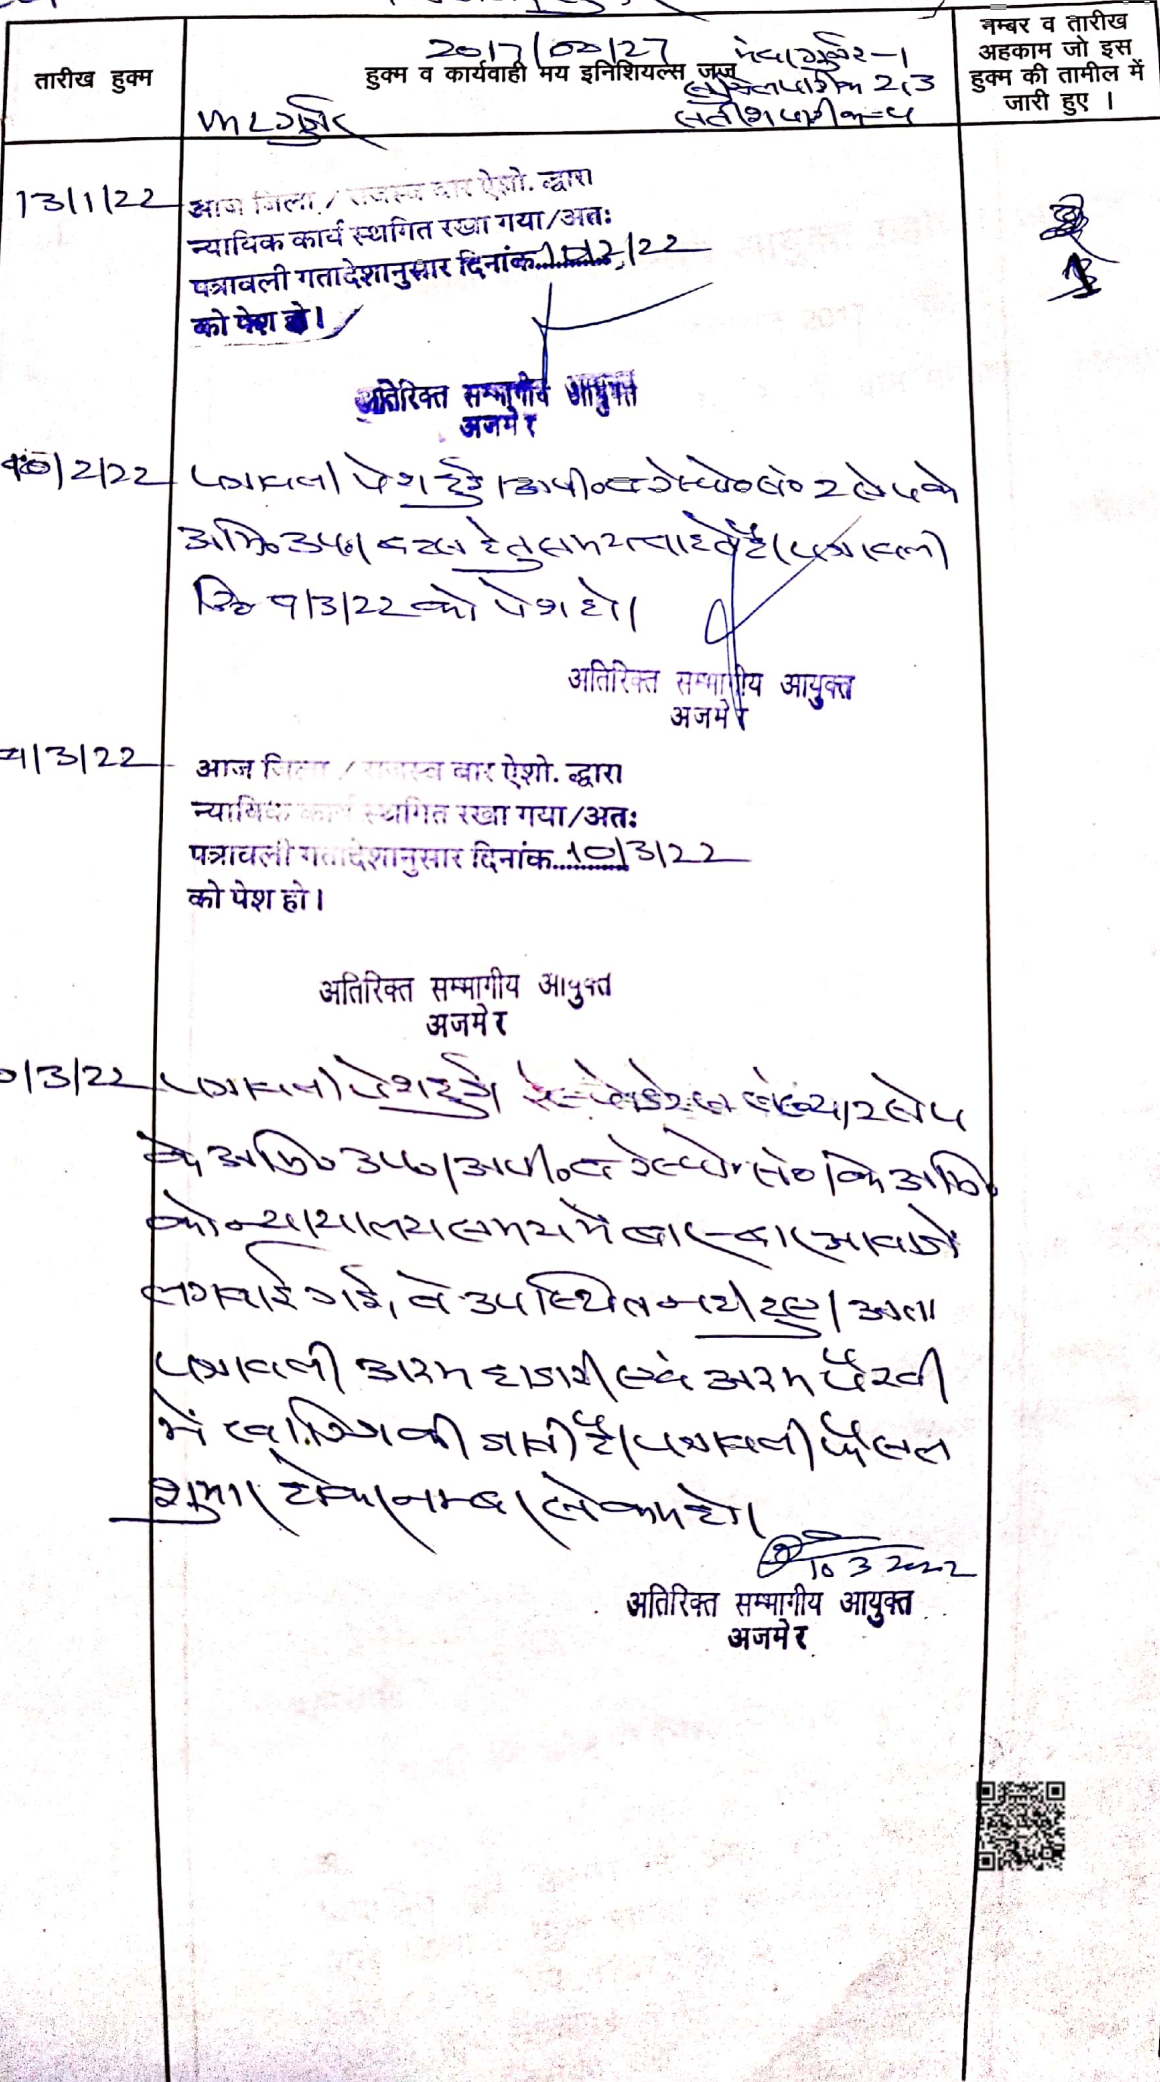 तारीख हुक्म
2017/00027
हुक्म व कार्यवाही मय इनिशियल्स जज
2,3
नम्बर व तारीख
अहकाम जो इस
हुक्म की तामील में
जारी हुए ।
13/1/22
आज जिला / राजस्व बार ऐशो. द्धारा
न्यायिक कार्य स्थगित रखा गया/अतः
पत्रावली गतादेशानुसार दिनांक 10/2/22
को पेश हो।
अतिरिक्त सम्भागीय आयुक्त
अजमेर
10/2/22
पत्रावली पेश हुई। अपी० व रेस्पो० सं० 2 से 4 के
अभि० उप० बहस हेतु समय चाहते है। पत्रावली
दि 9/3/22 को पेश हो।
अतिरिक्त सम्भागीय आयुक्त
अजमेर
9/3/22
आज जिला / राजस्व बार ऐशो. द्धारा
न्यायिक कार्य स्थगित रखा गया/अतः
पत्रावली गतादेशानुसार दिनांक 10/3/22
को पेश हो।
अतिरिक्त सम्भागीय आयुक्त
अजमेर
0/3/22
पत्रावली पेश हुई। रेस्पोडेन्ट संख्या 2 से 4
के अभि० उप०। अपी० व रेस्पो० सं० 1 के अभि०
को न्यायालय समय में बार-बार आवाजे
लगवाई गई, वे उपस्थित नही रहे। अतः
पत्रावली अदम हाजरी एवं अदम पैरवी
में खारिज की जाती है। पत्रावली फैसल
शुमार होकर नम्बर से कम हो।
10 3 2022
अतिरिक्त सम्भागीय आयुक्त
अजमेर